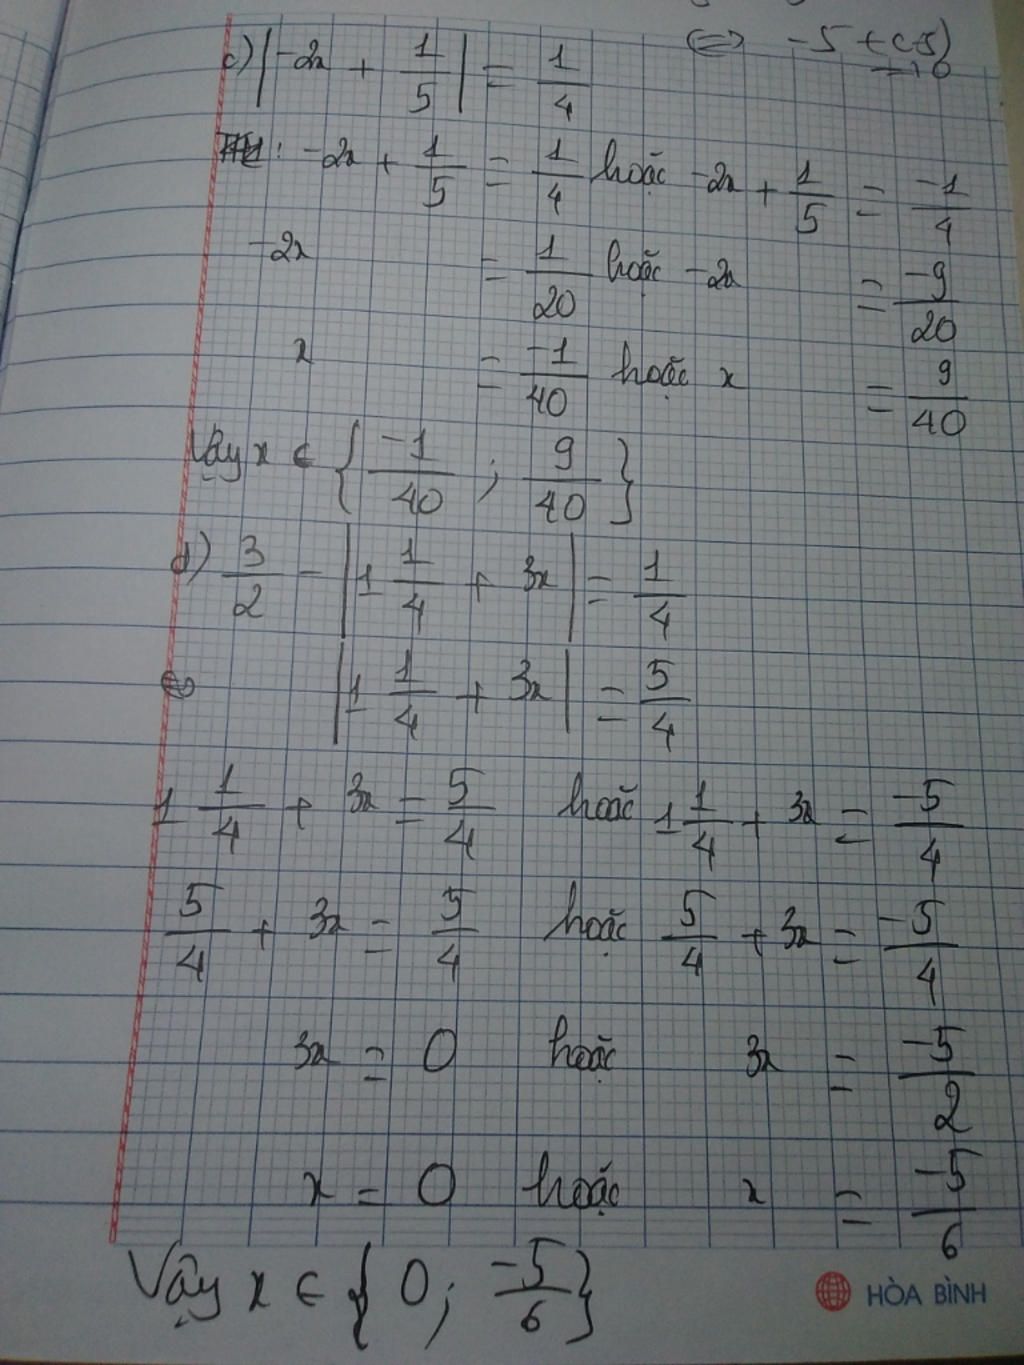 ⇔ -5 + (-5)
c) |-2x + 1/5| = 1/4
-2x + 1/5 = 1/4 hoặc -2x + 1/5 = -1/4
-2x = 1/20 hoặc -2x = -9/20
x = -1/40 hoặc x = 9/40
Vậy x ∈ {-1/40 ; 9/40}
d) 3/2 - |1 1/4 + 3x| = 1/4
|1 1/4 + 3x| = 5/4
1 1/4 + 3x = 5/4 hoặc 1 1/4 + 3x = -5/4
5/4 + 3x = 5/4 hoặc 5/4 + 3x = -5/4
3x = 0 hoặc 3x = -5/2
x = 0 hoặc x = -5/6
Vậy x ∈ {0; -5/6}
HÒA BÌNH